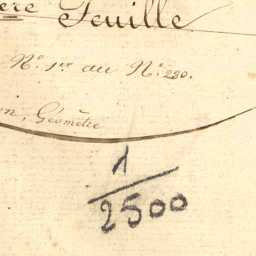 ère Feuille
N.° 1.er au N.° 280.
on, Géomètre
1
2500